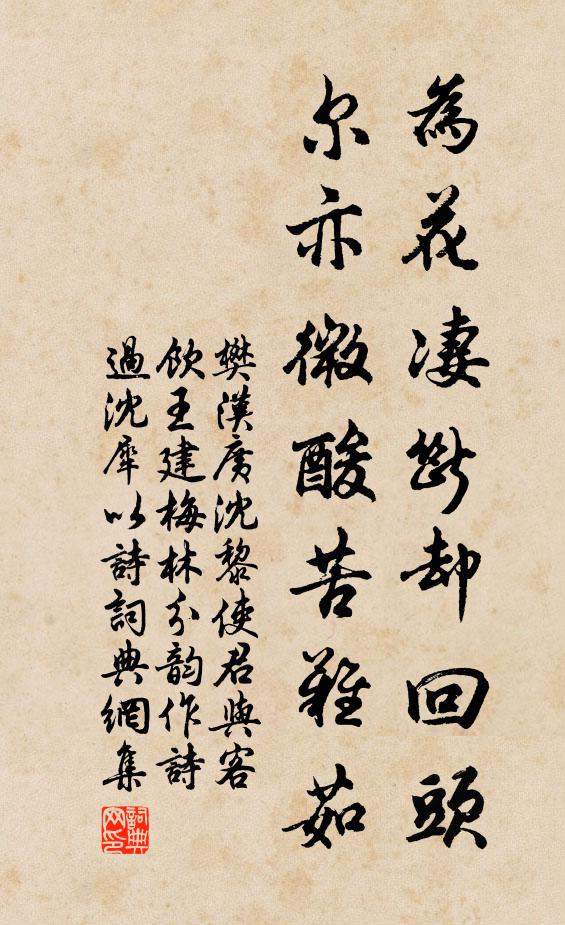 為花凄斷却回頭
尔亦微酸苦難茹
樊漢廣沈黎使君與客
飲王建梅林分韵作詩
過沈犀以詩詞典網集
詞典網印